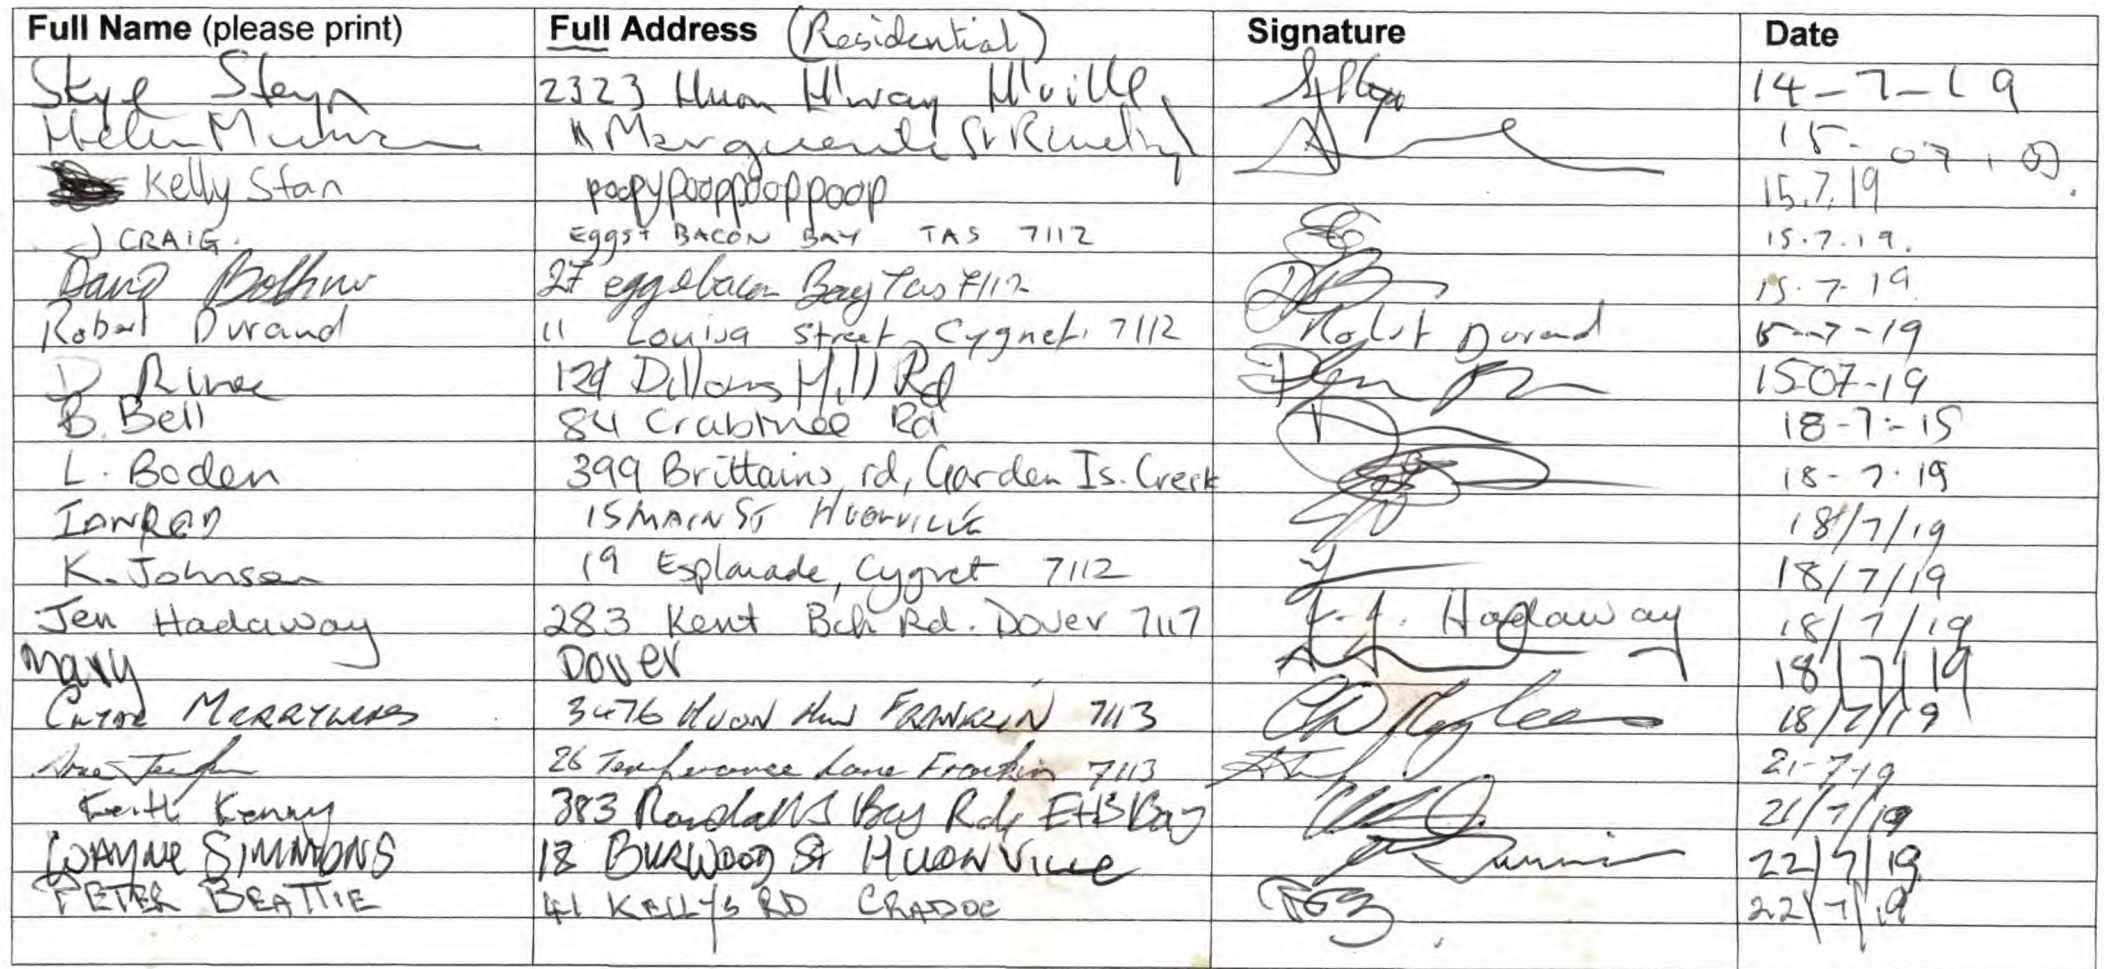 Full Name (please print) Full Address (Residential) Signature Date
Skye Steyn 2323 Huon H'way H'ville, 14-7-19
Helen 11 Marguerite St 15-07.
Kelly Stan poopypooppooppoop 15.7.19
J CRAIG. Eggs+ BACON BAY TAS 7112 15.7.19.
David 27 egg&bacon Bay Tas 7112 15.7-19
Robert Durand 11 Louisa Street, Cygnet. 7112 Robert Durand 15-7-19
D 129 Dillons Hill Rd 15-07-19
B. Bell 84 Crabtree Rd 18-7-15
L. Boden 399 Brittains rd, Garden Is. Creek 18-7.19
IAN RED 15 MAIN ST HUONVILLE 18/7/19
K. Johnson 19 Esplanade, Cygnet 7112 18/7/19
Jen Hadaway 283 Kent Bch Rd. Dover 7117 J. J. Hadaway 18/7/19
Mary Dover 18/7/19
3476 HUON FRANKLIN 7113 18/7/19
26 Temperance Lane Franklin 7113 21-7-19
Keith Kenny 383 Randalls Bay Rd, E+B Bay 21/7/19
WAYNE SIMMONS 18 BURWOOD St HUONVille 22/7/19
PETER BEATTIE 41 KELLYS RD CRADOC 22/7/19